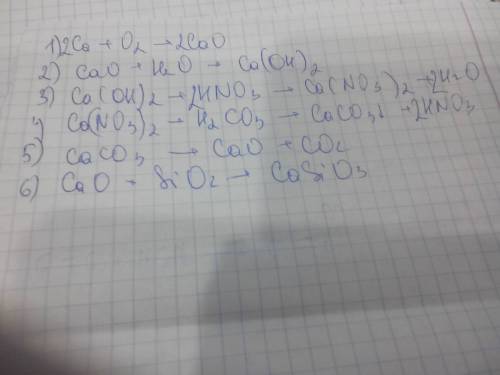 1) 2Ca + O₂ → 2CaO
2) CaO + H₂O → Ca(OH)₂
3) Ca(OH)₂ → 2HNO₃ → Ca(NO₃)₂ + 2H₂O
4) Ca(NO₃)₂ → H₂CO₃ → CaCO₃↓ + 2HNO₃
5) CaCO₃ → CaO + CO₂
6) CaO + SiO₂ → CaSiO₃